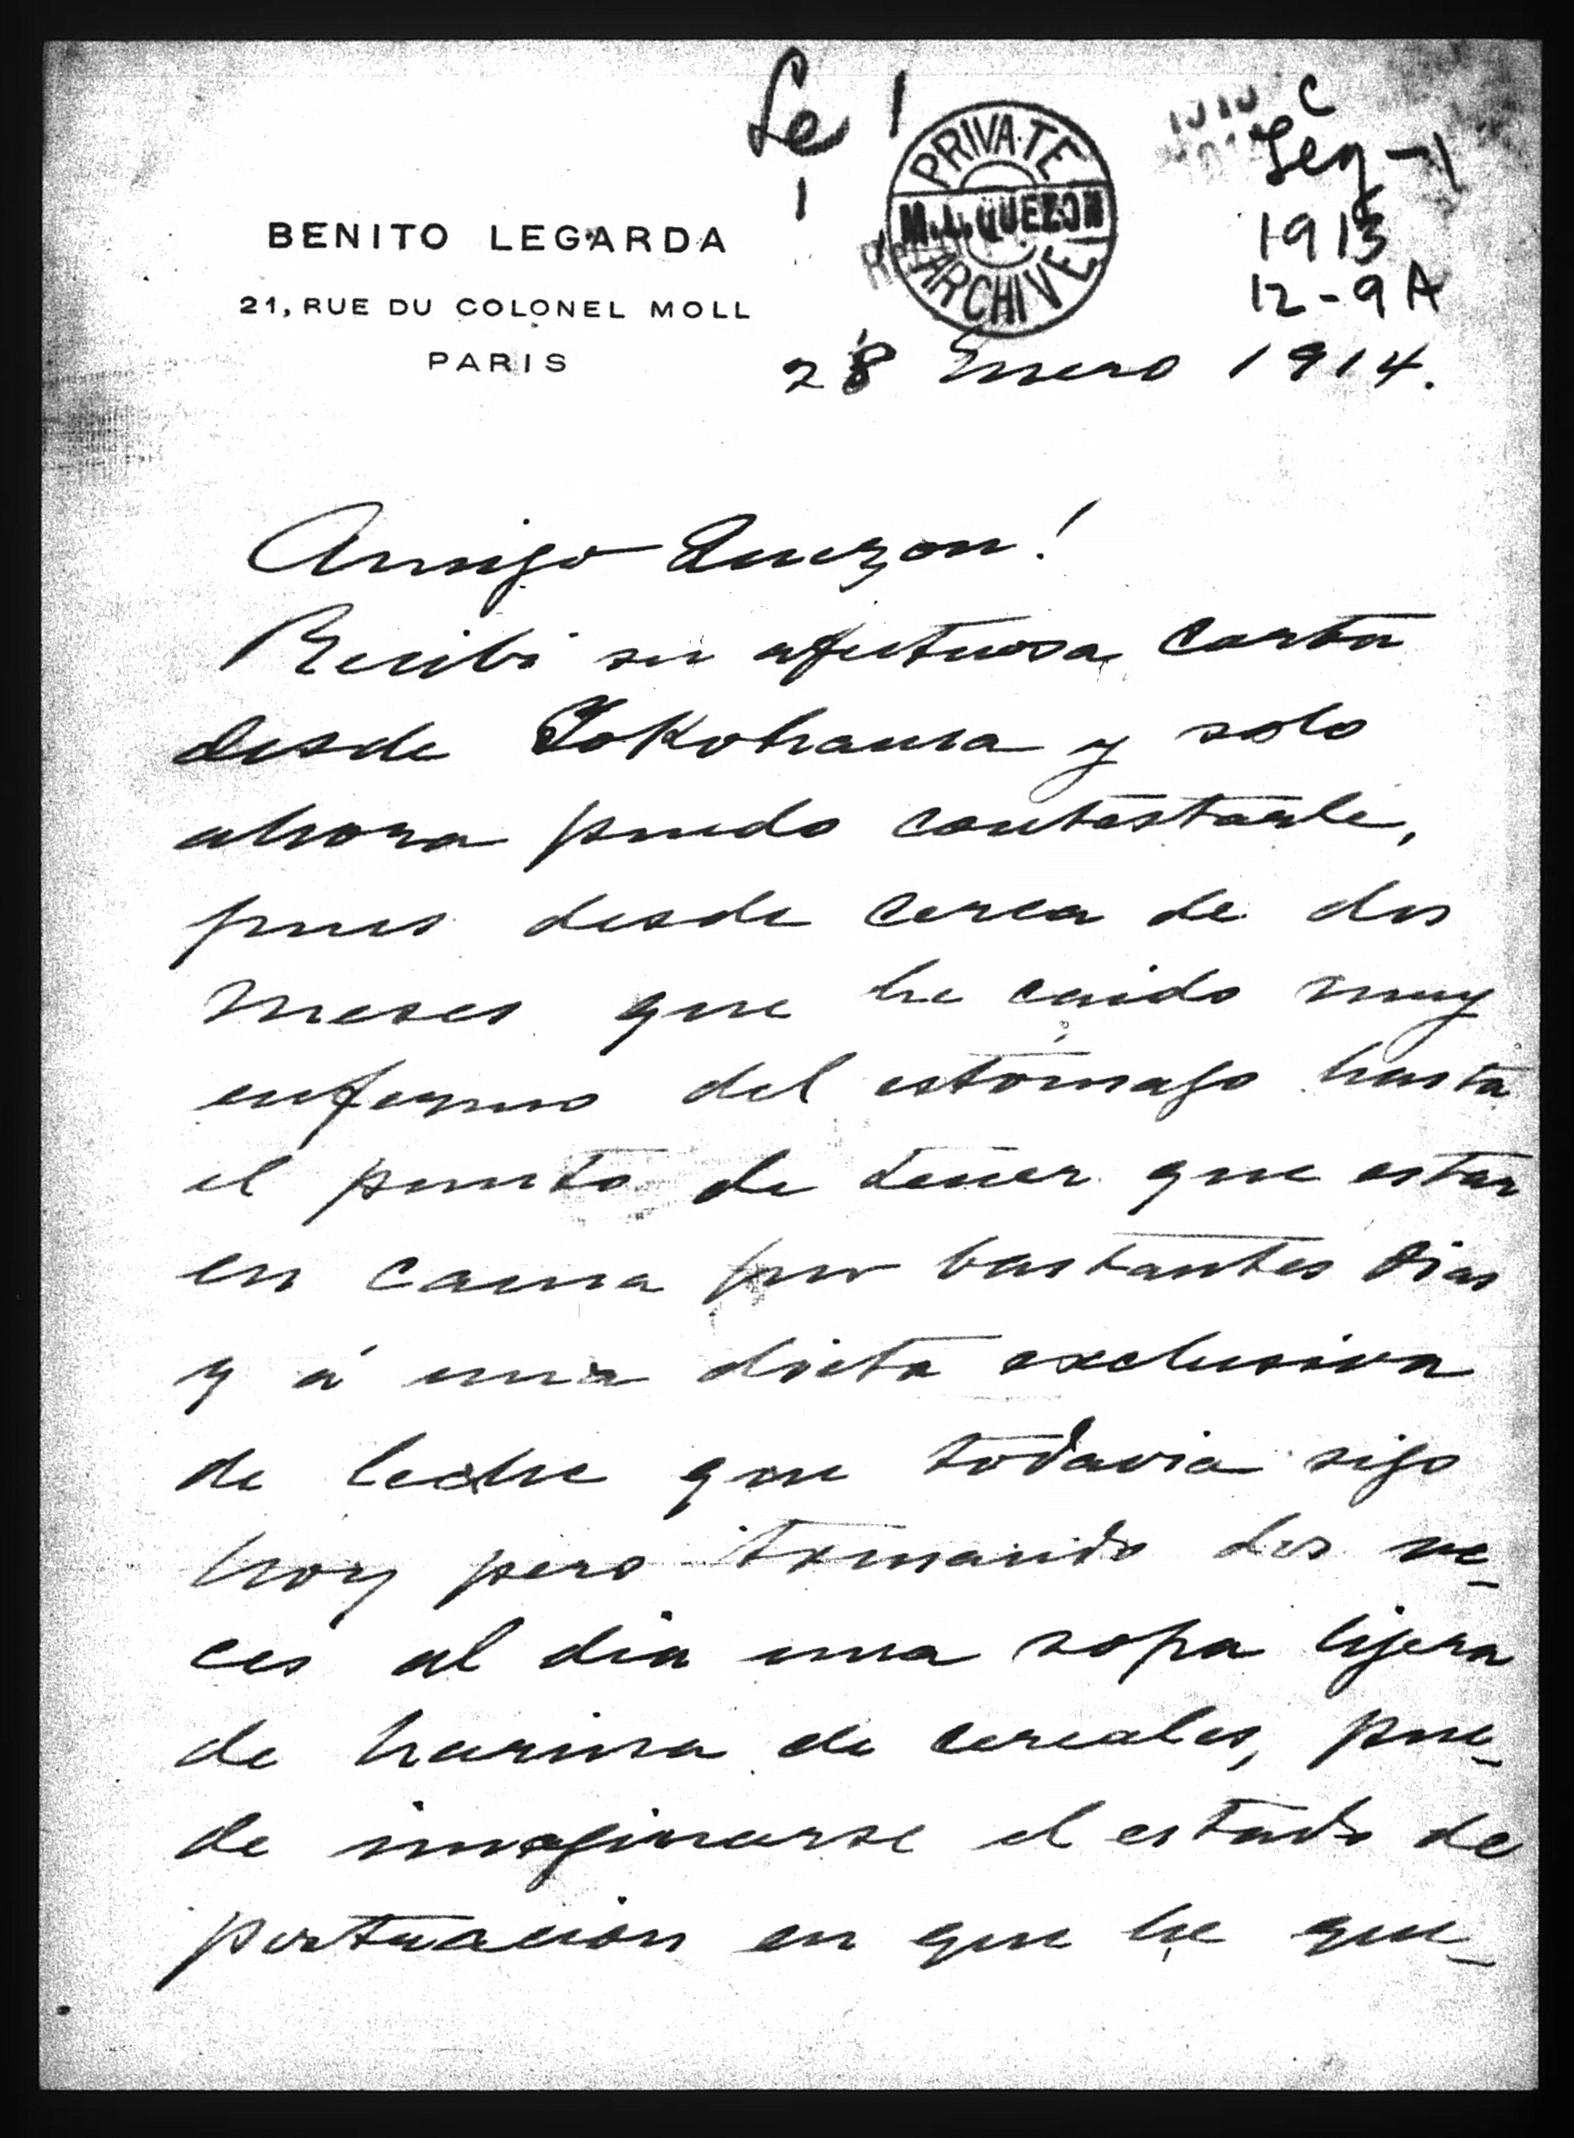 Le 1
1
PRIVATE
M.L. QUEZON
ARCHIVE
C
Leg-1
1913
12-9A
BENITO LEGARDA
21, RUE DU COLONEL MOLL
PARIS
28 Enero 1914.
Amigo Quezon!
Recibi su afectuosa carta
desde Yokohama y solo
ahora puedo contestarle,
pues desde cerca de dos
meses que he caido muy
enfermo del estómago hasta
el punto de tener que estar
en cama por bastantes dias
y á una dieta exclusiva
de leche que todavia sigo
hoy pero tomando dos ve-
ces al dia una sopa lijera
de harina de cereales, pue-
de imaginarse el estado de
postración en que he que-